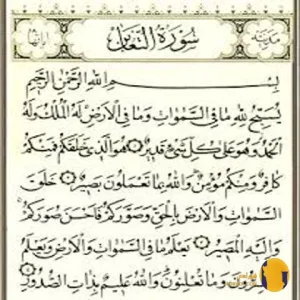 سُورَةُ التَّغَابُنِ
مدنية
بِسْمِ اللَّهِ الرَّحْمَٰنِ الرَّحِيمِ
يُسَبِّحُ لِلَّهِ مَا فِي السَّمَٰوَٰتِ وَمَا فِي الْأَرْضِ لَهُ الْمُلْكُ وَلَهُ
الْحَمْدُ وَهُوَ عَلَىٰ كُلِّ شَيْءٍ قَدِيرٌ هُوَ الَّذِي خَلَقَكُمْ فَمِنكُمْ
كَافِرٌ وَمِنكُم مُّؤْمِنٌ وَاللَّهُ بِمَا تَعْمَلُونَ بَصِيرٌ خَلَقَ
السَّمَٰوَٰتِ وَالْأَرْضَ بِالْحَقِّ وَصَوَّرَكُمْ فَأَحْسَنَ صُوَرَكُمْ
وَإِلَيْهِ الْمَصِيرُ يَعْلَمُ مَا فِي السَّمَٰوَٰتِ وَالْأَرْضِ وَيَعْلَمُ
مَا تُسِرُّونَ وَمَا تُعْلِنُونَ وَاللَّهُ عَلِيمٌ بِذَاتِ الصُّدُورِ